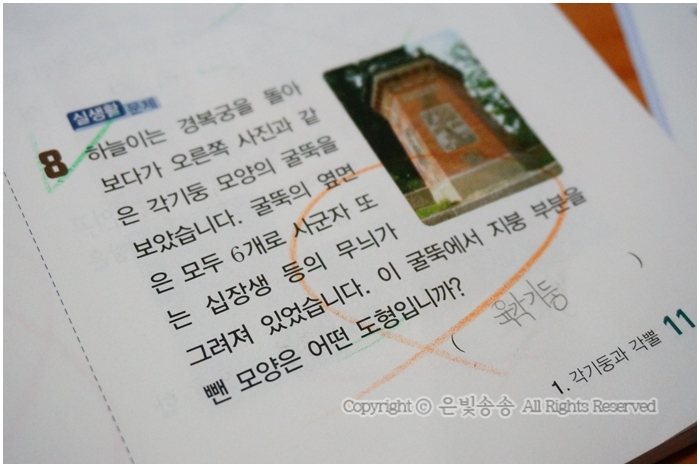 실생활 문제
8 하늘이는 경복궁을 돌아
보다가 오른쪽 사진과 같
은 각기둥 모양의 굴뚝을
보았습니다. 굴뚝의 옆면
은 모두 6개로 사군자 또
는 십장생 등의 무늬가
그려져 있었습니다. 이 굴뚝에서 지붕 부분을
뺀 모양은 어떤 도형입니까?
( 육각기둥 )
1. 각기둥과 각뿔 11
Copyright © 은빛송송 All Rights Reserved